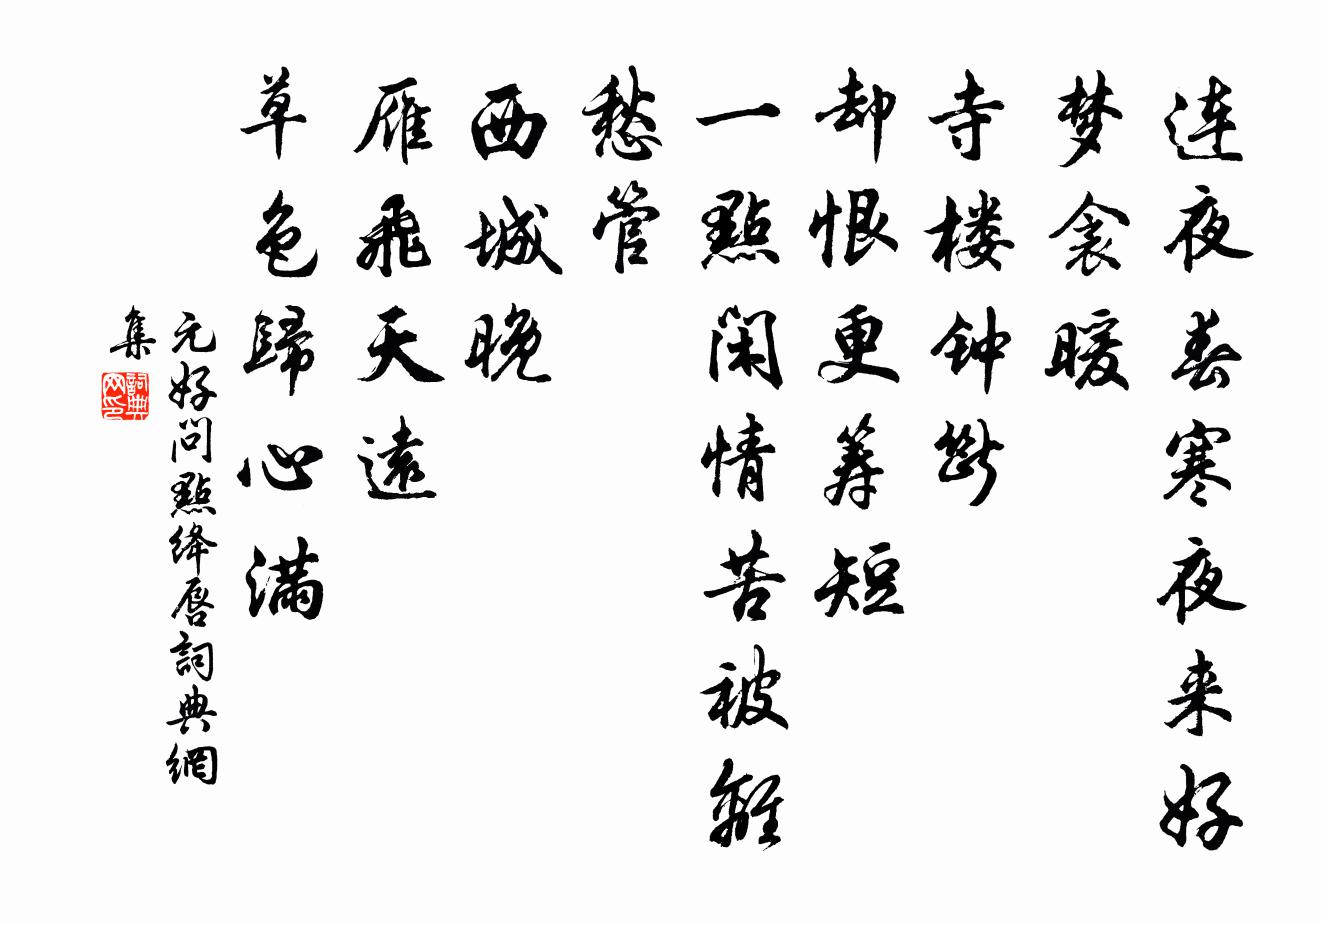 连夜春寒夜来好
梦衾暖
寺楼钟断
却恨更筹短
一點闲情苦被離
愁管
西城晚
雁飛天遠
草色歸心满
元好问點绛唇詞典網
集
詞典
网印